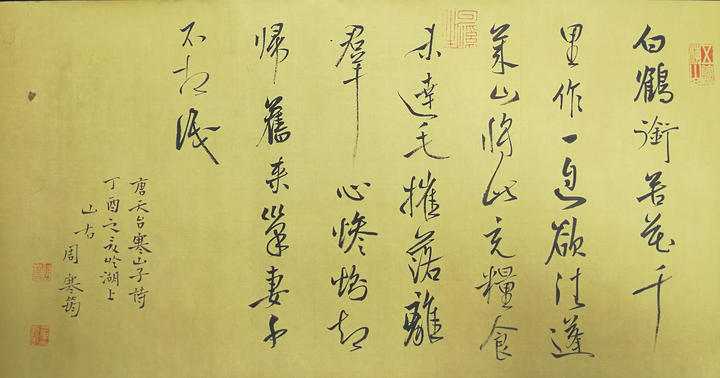 白鶴銜苦花千
里作一息欲往蓬
萊山將此充糧食
未達毛摧落離
羣心慘惻却
歸舊來巢妻子
不相識
唐天台寒山子詩
丁酉之湖上
山右周寒筠